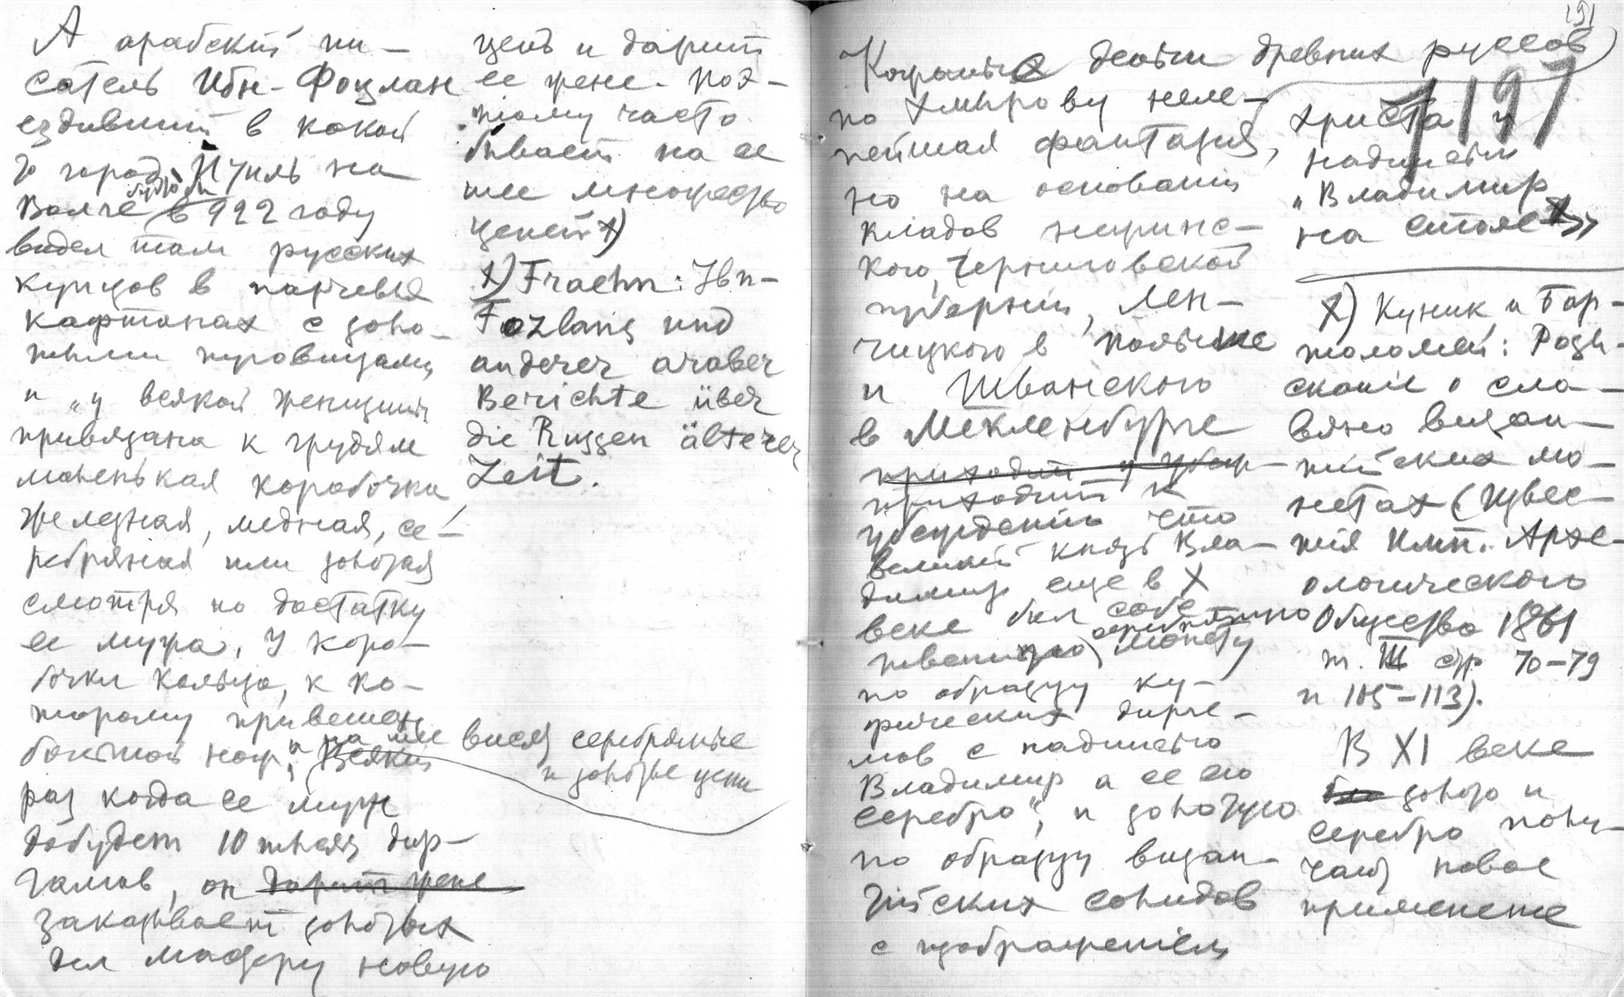 А арабскій пи-
сатель Ибн-Фоцлан
ездивший в какой
то город Итиль на
Волге будто бы
в 922 году
видел там русских
купцов в парчевых
кафтанах с золо-
тыми пуговицами
и „у всякой женщины
привязана к грудям
маленькая коробочка
железная, медная, се-
ребряная или золотая
смотря по достатку
ее мужа. У коро-
бочки кольцо, к ко-
торому привешен
большой нож, и на шее висят серебряные
и золотые цепи
Всякий
раз когда ее муж
добудет 10 тысяч дир-
гамов, он дарит жене
заказывает золотых
дел мастеру новую
цепь и дарит
ее жене. Поэ-
тому часто
бывает на ее
шее множество
цепей х)
х) Fraehn: Ibn-
Fozlans und
anderer araber
Berichte über
die Russen älterer
Zeit.
191
197
деньги древних руссов
по Хмырову неле-
пейшая фантазия,
но на основании
кладов нежинс-
кого, Черниговской
губернии, Лен-
чицкого в Польше
и Шванского
в Мекленбурге
приходит к
убеждению что
великий князь Вла-
димир еще в X
веке бил себе
серебряную монету
по образцу ку-
фических дирге-
мов с надписью
Владимир а се его
серебро", и золотую
по образцу визан-
тийских солидов
с изображением
Христа и
надписью
„Владимир
на столе х»
х) Куник и Бар-
толомей: Розы-
скание о сла-
вяно визан-
тийских мо-
нетах (Извес-
тия Имп. Архе-
ологического
Общества 1861
т. III стр 70–79
и 105–113).
В XI веке
золото и
серебро полу-
чают новое
применение